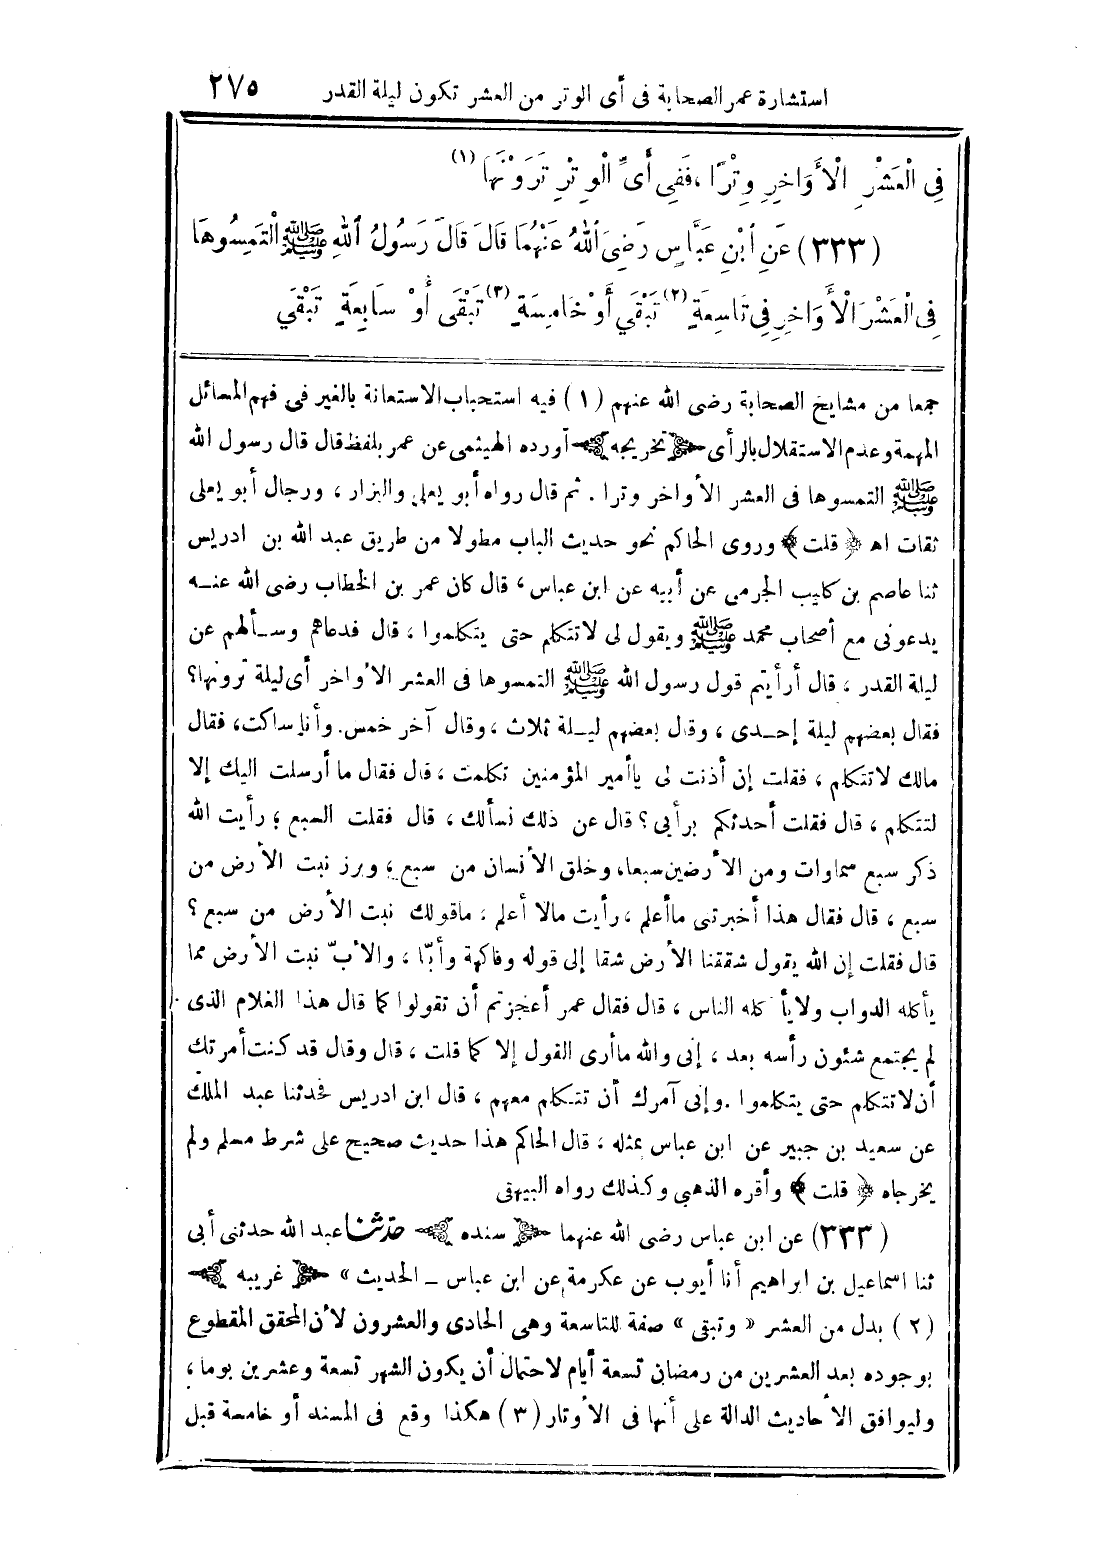 استشارة عمر الصحابة فى أى الوتر من العشر تكون ليلة القدر ٢٧٥
فِى الْعَشْرِ الْأَوَاخِرِ وِتْرًا ، فَفِى أَىِّ الْوِتْرِ تَرَوْنَهَا (١)
(٣٣٣) عَنِ ابْنِ عَبَّاسٍ رَضِىَ اللهُ عَنْهُمَا قَالَ قَالَ رَسُولُ اللهِ ﷺ الْتَمِسُوهَا
فِى الْعَشْرِ الْأَوَاخِرِ فِى تَاسِعَةٍ (٢) تَبْقَى أَوْ خَامِسَةٍ (٣) تَبْقَى أَوْ سَابِعَةٍ تَبْقَى
جمعا من مشايخ الصحابة رضى الله عنهم (١) فيه استحباب الاستعانة بالغير فى فهم المسائل
المهمة وعدم الاستقلال بالرأى ﴿ تخريجه ﴾ أورده الهيثمى عن عمر بلفظ قال قال رسول الله
ﷺ التمسوها فى العشر الأواخر وترا . ثم قال رواه أبو يعلى والبزار ، ورجال أبو يعلى
ثقات اهـ ﴿ قلت ﴾ وروى الحاكم نحو حديث الباب مطولا من طريق عبد الله بن ادريس
ثنا عاصم بن كليب الجرمى عن أبيه عن ابن عباس ، قال كان عمر بن الخطاب رضى الله عنه
يدعونى مع أصحاب محمد ﷺ ويقول لى لا تتكلم حتى يتكلموا ، قال فدعاهم وسألهم عن
ليلة القدر ، قال أرأيتم قول رسول الله ﷺ التمسوها فى العشر الأواخر أى ليلة ترونها ؟
فقال بعضهم ليلة إحدى ، وقال بعضهم ليلة ثلاث ، وقال آخر خمس. وأنا ساكت ، فقال
مالك لا تتكلم ، فقلت إن أذنت لى يا أمير المؤمنين تكلمت ، قال فقال ما أرسلت اليك إلا
لتتكلم ، قال فقلت أحدثكم برأيى ؟ قال عن ذلك نسألك ، قال فقلت السبع ؛ رأيت الله
ذكر سبع سماوات ومن الأرضين سبعا، وخلق الأنسان من سبع ؛ وبرز نبت الأرض من
سبع ، قال فقال هذا أخبرتنى ما أعلم ، رأيت مالا أعلم ، ما قولك نبت الأرض من سبع ؟
قال فقلت إن الله يقول شققنا الأرض شقا إلى قوله وفاكهة وأبّا ، والأبّ نبت الأرض مما
يأكله الدواب ولا يأكله الناس ، قال فقال عمر أعجزتم أن تقولوا كما قال هذا الغلام الذى
لم يجتمع شئون رأسه بعد ، إنى والله ما أرى القول إلا كما قلت ، قال وقال قد كنت أمرتك
أن لا تتكلم حتى يتكلموا .وإنى آمرك أن تتكلم معهم ، قال ابن ادريس فحدثنا عبد الملك
عن سعيد بن جبير عن ابن عباس بمثله ، قال الحاكم هذا حديث صحيح على شرط مسلم ولم
يخرجاه ﴿ قلت ﴾ وأقره الذهبى وكذلك رواه البيهقى
(٣٣٣) عن ابن عباس رضى الله عنهما ﴿ سنده ﴾ حدثنا عبد الله حدثنى أبى
ثنا اسماعيل بن ابراهيم أنا أيوب عن عكرمة عن ابن عباس ــ الحديث » ﴿ غريبه ﴾
(٢) بدل من العشر « وتبقى » صفة للتاسعة وهى الحادى والعشرون لأن المحقق المقطوع
بوجوده بعد العشرين من رمضان تسعة أيام لاحتمال أن يكون الشهر تسعة وعشرين يوما ،
وليوافق الأحاديث الدالة على أنها فى الأوتار (٣) هكذا وقع فى المسند أو خامسة قبل